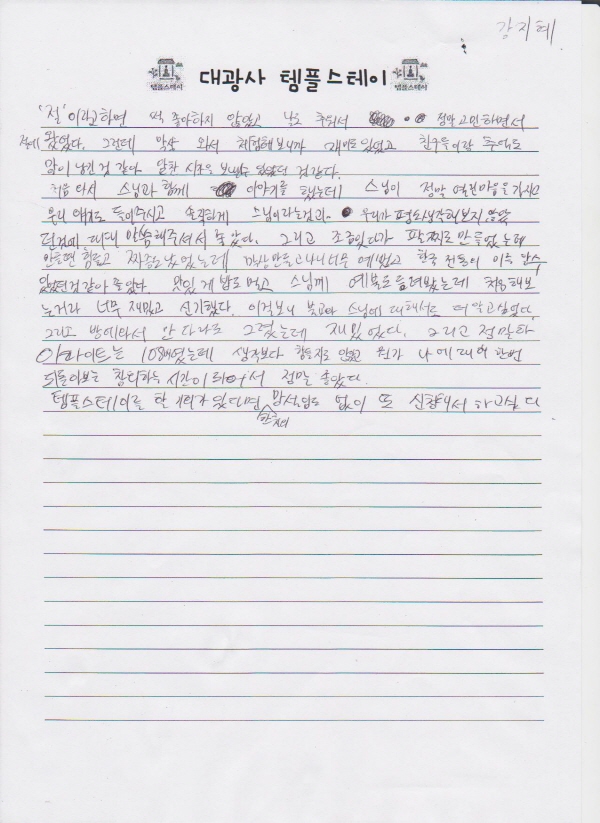 강지혜
템플스테이 대광사 템플스테이 템플스테이
'절'이라고하면 썩 좋아하지 않았고 날도 추워서 정말 고민하면서
절에 왔었다. 그런데 막상 와서 체험해보니까 재미도 있었고 친구들이랑 추억도
많이 남긴것 같아 알찬 시간을 보낼수 있었던 것같다.
처음 와서 스님과 함께 이야기를 했는데 스님이 정말 열린마음을 가지고
우리 얘기도 들어주시고 솔직하게 스님이라는것과 우리가 평소생각해보지 않았
던것에 대해 말씀해주셔서 좋았다. 그리고 조금있다가 팔찌도 만들었는데
만들땐 힘들고 짜증도났었는데 막상만들고나니너무 예뻤고 한국 전통의 미를 알수
있었던것 같아 좋았다. 맛있게 밥도 먹고 스님께 예불도 드려봤는데 처음해보
는거라 너무 재밌고 신기했다. 이것보니 불교와 스님에 대해서도 더 알고싶었다.
그리고 방에와서 만다라도 그렸는데 재밌었다. 그리고 정말 하
이라이트는 108배였는데 생각보다 힘들지도 않았고 뭔가 나에대해 한번
되돌아보는 참회하는 시간이 되어서 정말 좋았다.
템플스테이를 할 기회가 있다면 한번더 망설임도 없이 또 신청해서 하고싶다